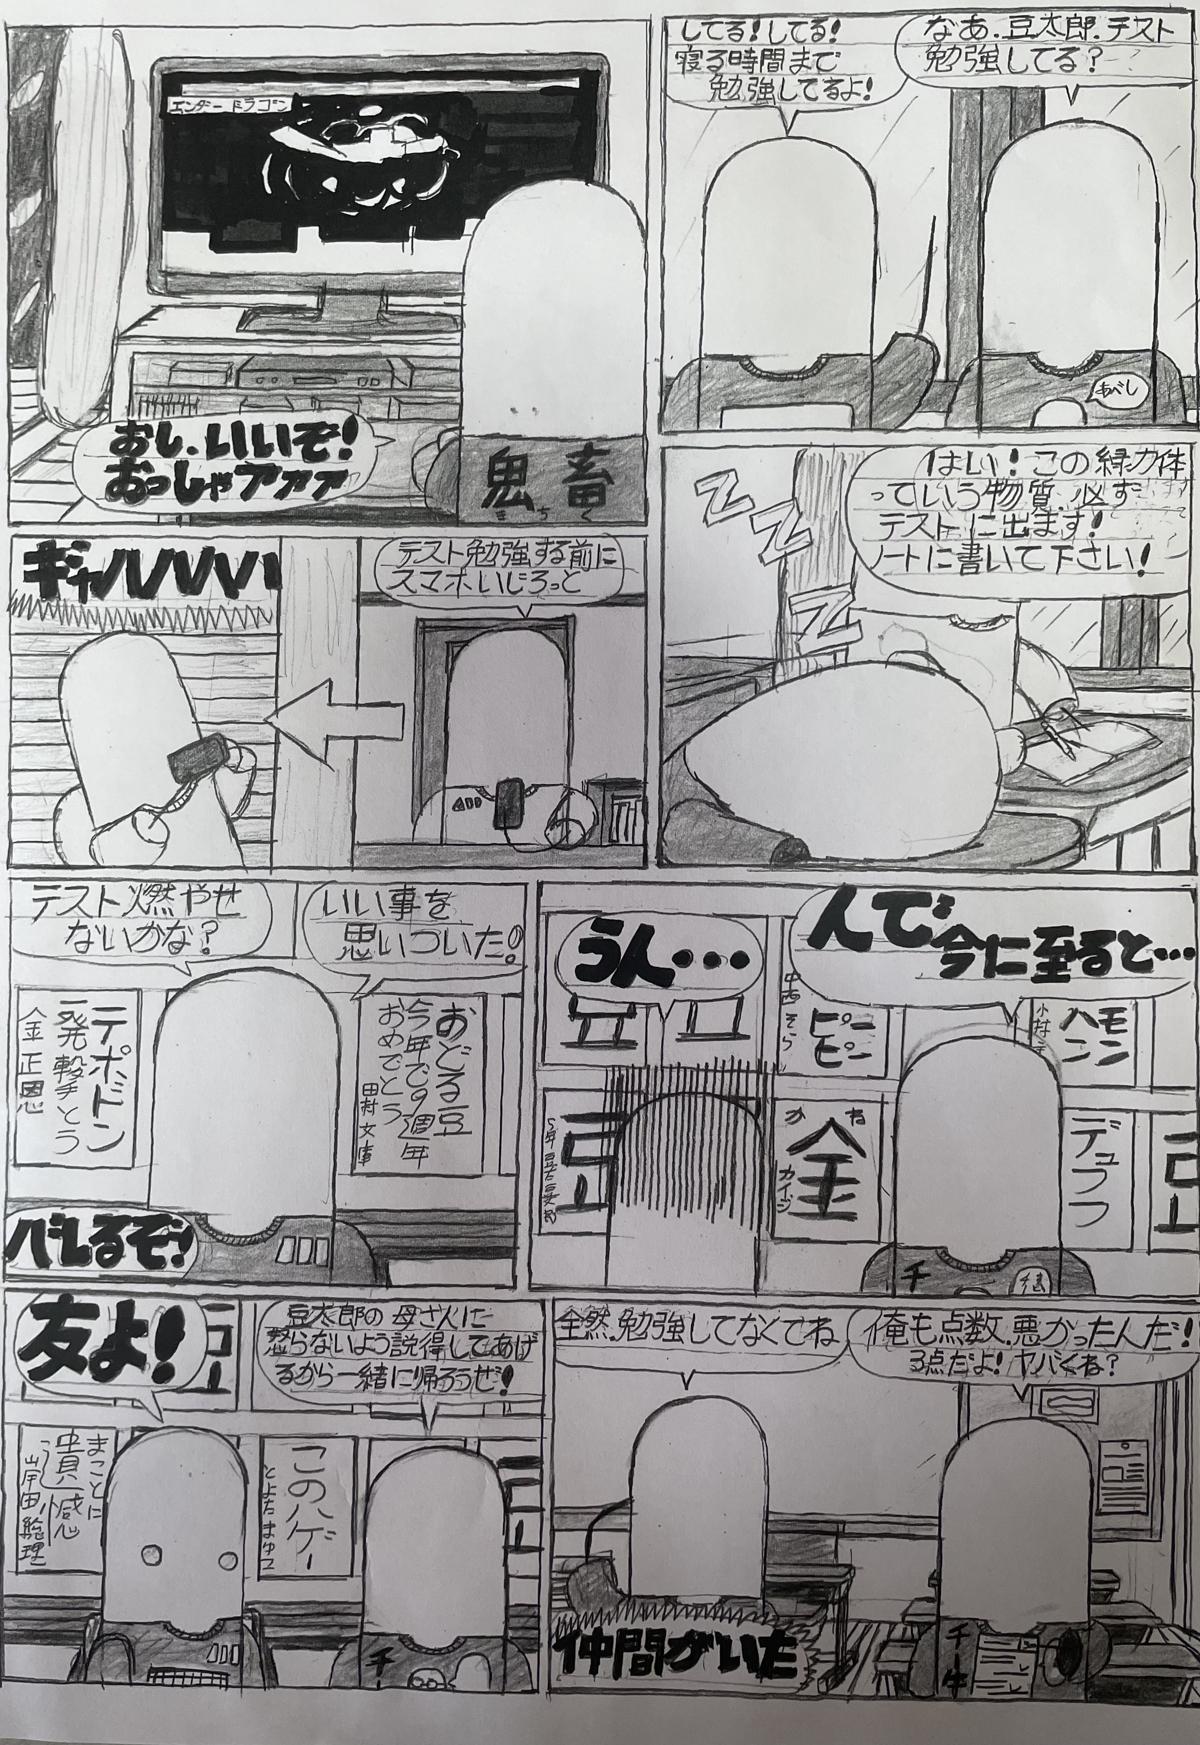 なあ、豆太郎、テスト
勉強してる？
してる！してる！
寝る時間まで
勉強してるよ！
あべし
エンダードラゴン
おし、いいぞ！
おっしゃアァァ
鬼畜
きちく
はい！この緑力体
っていう物質、必ず
テストに出ます！
ノートに書いて下さい！
ZZZ
テスト勉強する前に
スマホいじろっと
んで
今に至ると…
うん…
モン
ハン
小村
ピーピー
中西そら
デュフフ
金
かね
カイジ
豆
千
いい事を
思いついた！
テスト燃やせ
ないかな？
おどる豆
今年で9周年
おめでとう
田村文庫
テポドン
発撃とう
金正恩
バレるぞ！
俺も点数、悪かったんだ！
3点だよ！ヤバくね？
全然、勉強してなくてね
仲間がいた
千
牛
豆太郎の母さんに
怒らないよう説得してあげ
るから一緒に帰ろうぜ！
友よ！
このハゲー
とよた まゆこ
まことに
遺感
岸田総理
千